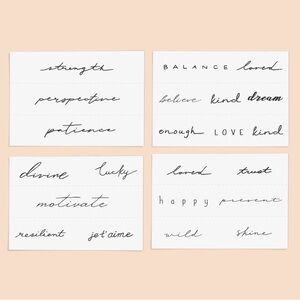 strength
perspective
patience
BALANCE loved
believe kind dream
enough LOVE kind
divine lucky
motivate
resilient je t'aime
loved trust
happy present
wild shine